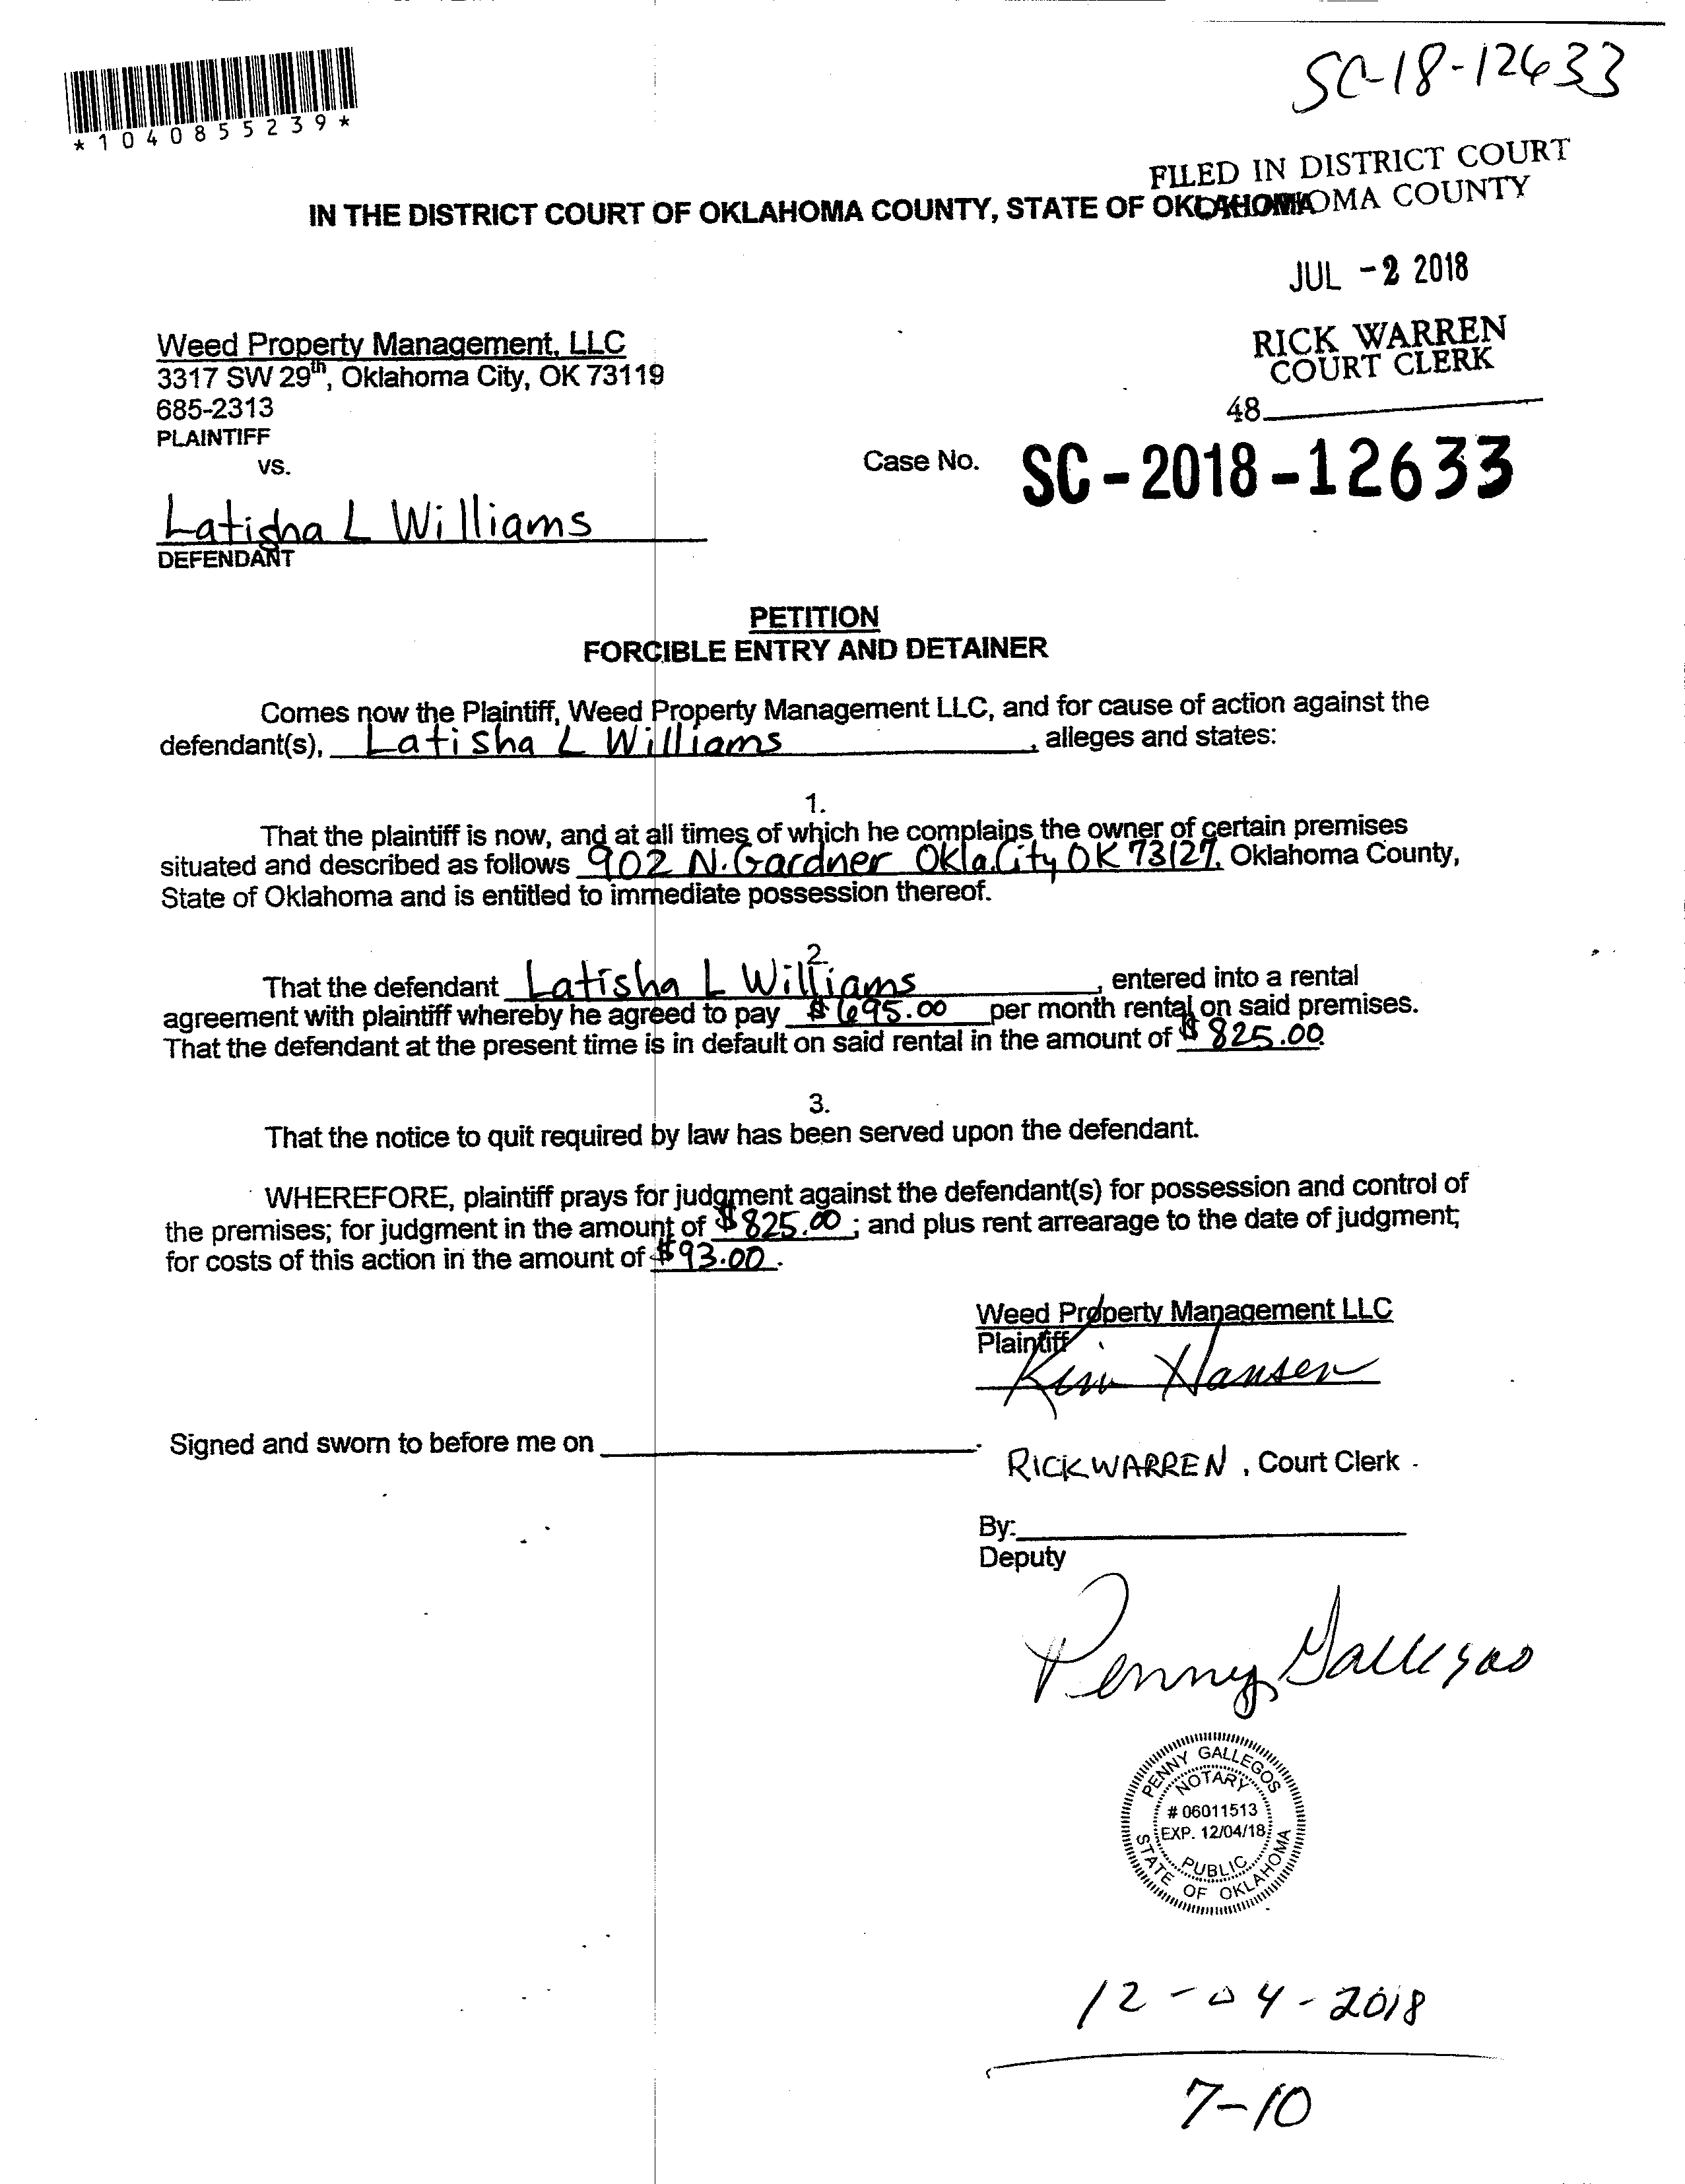 SC-18-12633
*1040855239*
FILED IN DISTRICT COURT
OKLAHOMA COUNTY
IN THE DISTRICT COURT OF OKLAHOMA COUNTY, STATE OF OKLAHOMA
JUL -2 2018
RICK WARREN
COURT CLERK
48
Weed Property Management, LLC
3317 SW 29th, Oklahoma City, OK 73119
685-2313
PLAINTIFF
vs.
Case No. SC-2018-12633
Latisha L Williams
DEFENDANT
PETITION
FORCIBLE ENTRY AND DETAINER
Comes now the Plaintiff, Weed Property Management LLC, and for cause of action against the
defendant(s), Latisha L Williams, alleges and states:
1.
That the plaintiff is now, and at all times of which he complains the owner of certain premises
situated and described as follows 902 N. Gardner Okla.City OK 73127, Oklahoma County,
State of Oklahoma and is entitled to immediate possession thereof.
2.
That the defendant Latisha L Williams, entered into a rental
agreement with plaintiff whereby he agreed to pay $695.00 per month rental on said premises.
That the defendant at the present time is in default on said rental in the amount of $825.00.
3.
That the notice to quit required by law has been served upon the defendant.
WHEREFORE, plaintiff prays for judgment against the defendant(s) for possession and control of
the premises; for judgment in the amount of $825.00; and plus rent arrearage to the date of judgment;
for costs of this action in the amount of $93.00.
Weed Property Management LLC
Plaintiff
Kim Hansen
Signed and sworn to before me on
RICK WARREN, Court Clerk
By:
Deputy
Penny Gallegos
PENNY GALLEGOS
NOTARY
# 06011513
EXP. 12/04/18
PUBLIC
STATE OF OKLAHOMA
12-04-2018
7-10